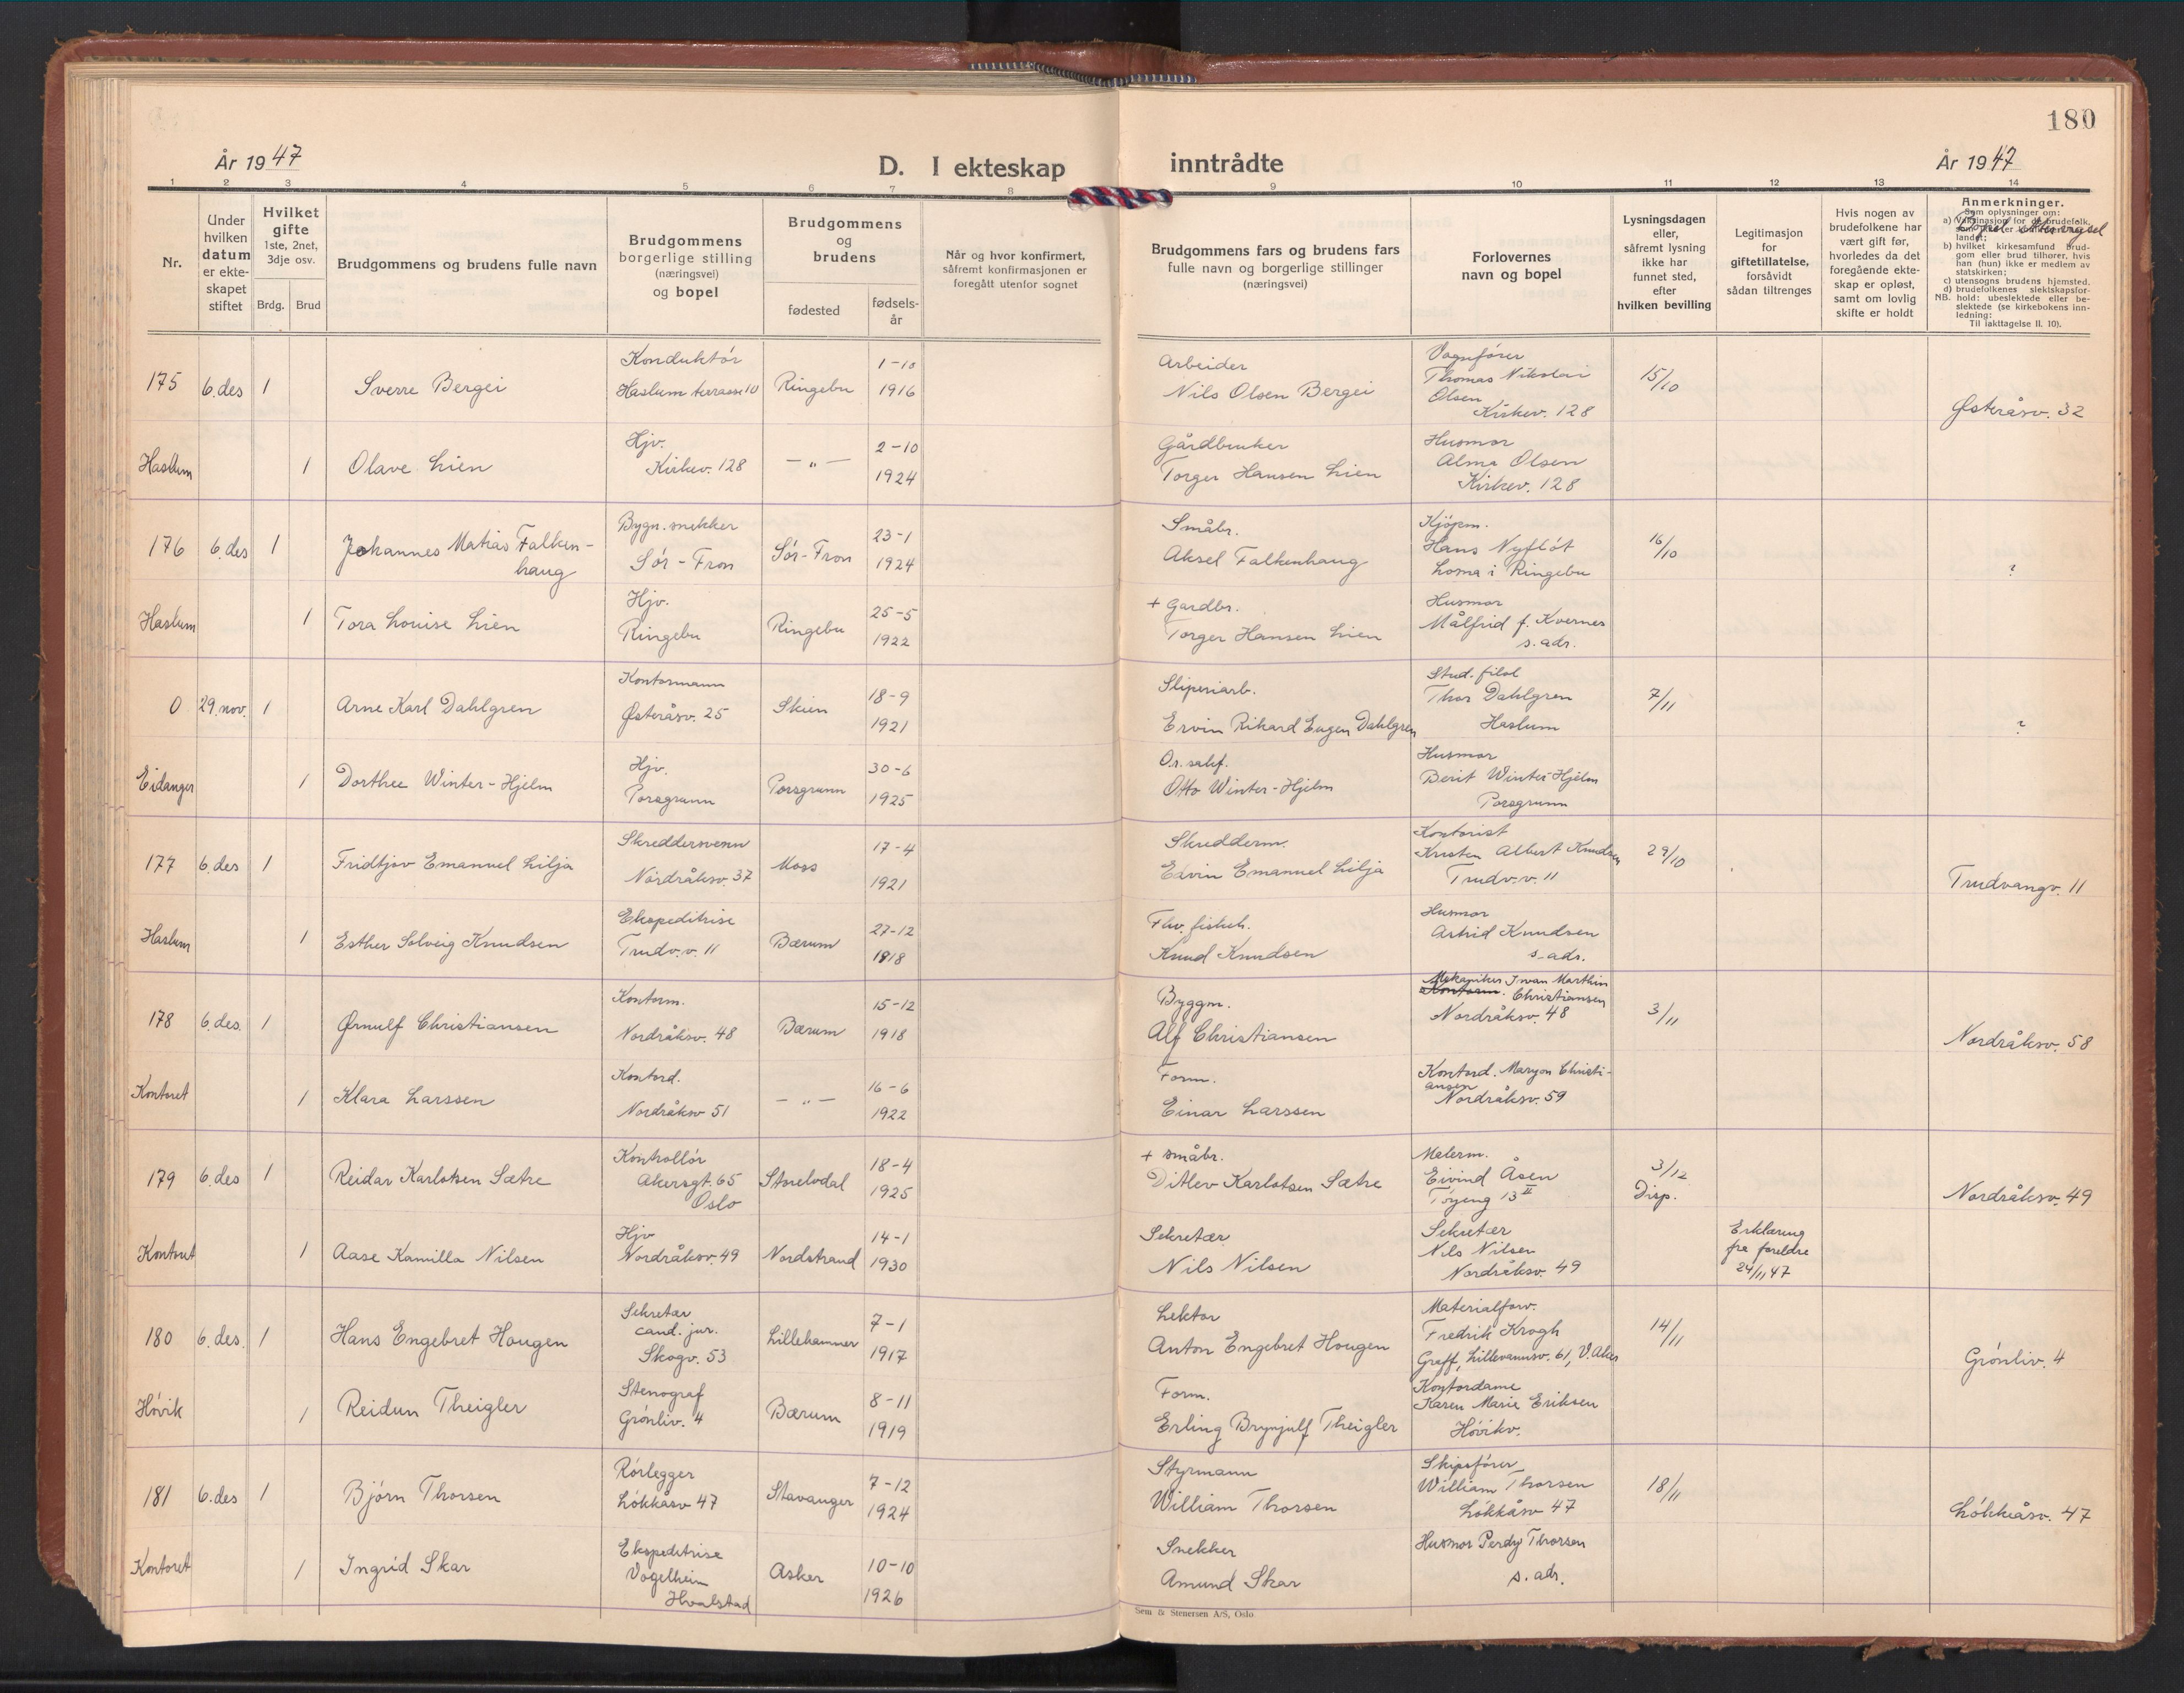 180
År 1947
D. I ekteskap inntrådte
År 1947
1 2 3 4 5 6 7 8 9 10 11 12 13 14
Nr.
Under hvilken datum er ekte-skapet stiftet
Hvilket gifte 1ste, 2net, 3dje osv.
Brdg. Brud
Brudgommens og brudens fulle navn
Brudgommens borgerlige stilling (næringsvei) og bopel
Brudgommens og brudens
fødested
fødsels-år
Når og hvor konfirmert, såfremt konfirmasjonen er foregått utenfor sognet
Brudgommens fars og brudens fars fulle navn og borgerlige stillinger (næringsvei)
Forlovernes navn og bopel
Lysningsdagen eller, såfremt lysning ikke har funnet sted, efter hvilken bevilling
Legitimasjon for giftetillatelse, forsåvidt sådan tiltrenges
Hvis nogen av brudefolkene har vært gift før, hvorledes da det foregående ekte-skap er opløst, samt om lovlig skifte er holdt
Anmerkninger.
Som oplysninger om:
b) hvilket kirkesamfund brud-gom eller brud tilhører, hvis han (hun) ikke er medlem av statskirken;
c) utensogns brudens hjemsted.
d) brudefolkenes slektskapsfor-hold: ubeslektede eller be-slektede (se kirkebokens inn-ledning:
NB.
Til iakttagelse II. 10).
Bopel
175 6. des 1 Sverre Bergei
Konduktör
Haslum terrasse 10
Ringebu
1-10
1916
Arbeider
Nils Olsen Bergei
Vognförer
Thomas Nikolai
Olsen
Kirkev. 128
15/10
Østeråsv. 32
Haslum 1 Olave Lien
Hjv.
Kirkev. 128
— „ —
2-10
1924
Gårdbruker
Torger Hansen Lien
Husmor
Alma Olsen
Kirkev. 128
176 6. des 1 Johannes Matias Falken-
haug
Bygn. snekker
Sör-Fron
Sör-Fron
23-1
1924
Småbr.
Aksel Falkenhaug
Kjöpm.
Hans Nyflöt
Loma i Ringebu
16/10
?
Haslum 1 Tora Louise Lien
Hjv.
Ringebu
Ringebu
25-5
1922
+ Gardbr.
Torger Hansen Lien
Husmor
Målfrid f. Kvernes
s. adr.
0 29. nov. 1 Arne Karl Dahlgren
Kontormann
Østeråsv. 25
Skien
18-9
1921
Sliperiarb.
Ervin Rikard Eugen Dahlgren
Stud. filol
Thor Dahlgren
Haslum
7/11
?
Eidanger 1 Dorthee Winter-Hjelm
Hjv.
Porsgrunn
Porsgrunn
30-6
1925
O.r. sakf.
Otto Winter-Hjelm
Husmor
Berit Winter-Hjelm
Porsgrunn
177 6. des 1 Fridtjov Emanuel Lilja
Skreddersvenn
Nordråksv. 37
Moss
17-4
1921
Skredderm.
Edvin Emanuel Lilja
Kontorist
Kristen Albert Knudsen
Trudv. v. 11
29/10
Trudvangv. 11
Haslum 1 Esther Solveig Knudsen
Ekspeditrise
Trudv. v. 11
Bærum
27-12
1918
Knud Knudsen
Husmor
Astrid Knudsen
s. adr.
178 6. des. 1 Ørnulf Christiansen
Kontorm.
Nordråksv. 48
Bærum
15-12
1918
Byggm.
Alf Christiansen
Mekaniker Ivan Marthin
Kontorm. Christiansen
Nordråksv. 48
3/11
Nordråksv. 58
Kontoret 1 Klara Larssen
Kontord.
Nordråksv 51
— „ —
16-6
1922
Form.
Einar Larssen
Kontord. Maryon Christi-
ansen
Nordråksv. 59
179 6. des 1 Reidar Karlotsen Sætre
Kontrollör
Akersgt. 65
Oslo
Storelvdal
18-4
1925
+ småbr.
Ditlev Karlotsen Sætre
Malerm.
Eivind Åsen
Töyeng 13 II
3/12
Disp.
Nordråksv. 49
Kontoret 1 Aase Kamilla Nilsen
Hjv
Nordråksv. 49
Nordstrand
14-1
1930
Sekretær
Nils Nilsen
Sekretær
Nils Nilsen
Nordråksv. 49
Erklæring
fra foreldre
24/11 47
180 6. des. 1 Hans Engebret Hougen
Sekretær
cand. jur.
Skogv. 53
Lillehammer
7-1
1917
Lektor
Anton Engebret Hougen
Materialforv.
Fredrik Krogh
Graff, Lillevannsv. 61, V. Aker
14/11
Grönliv. 4
Hövik 1 Reidun Theigler
Stenograf
Grönliv. 4
Bærum
8-11
1919
Form.
Erling Brynjulf Theigler
Kontordame
Karen Marie Eriksen
Hövikv.
181 6. des 1 Björn Thorsen
Rörlegger
Lökkåsv 47
Stavanger
7-12
1924
Styrmann
William Thorsen
Skipsförer
William Thorsen
Lökkåsv 47
18/11
Lökkeåsv. 47
Kontoret 1 Ingrid Skar
Ekspeditrise
Vogelheim
Hvalstad
Asker
10-10
1926
Snekker
Amund Skar
Husmor Perdy Thorsen
s. adr.
Sem & Stenersen A/S, Oslo